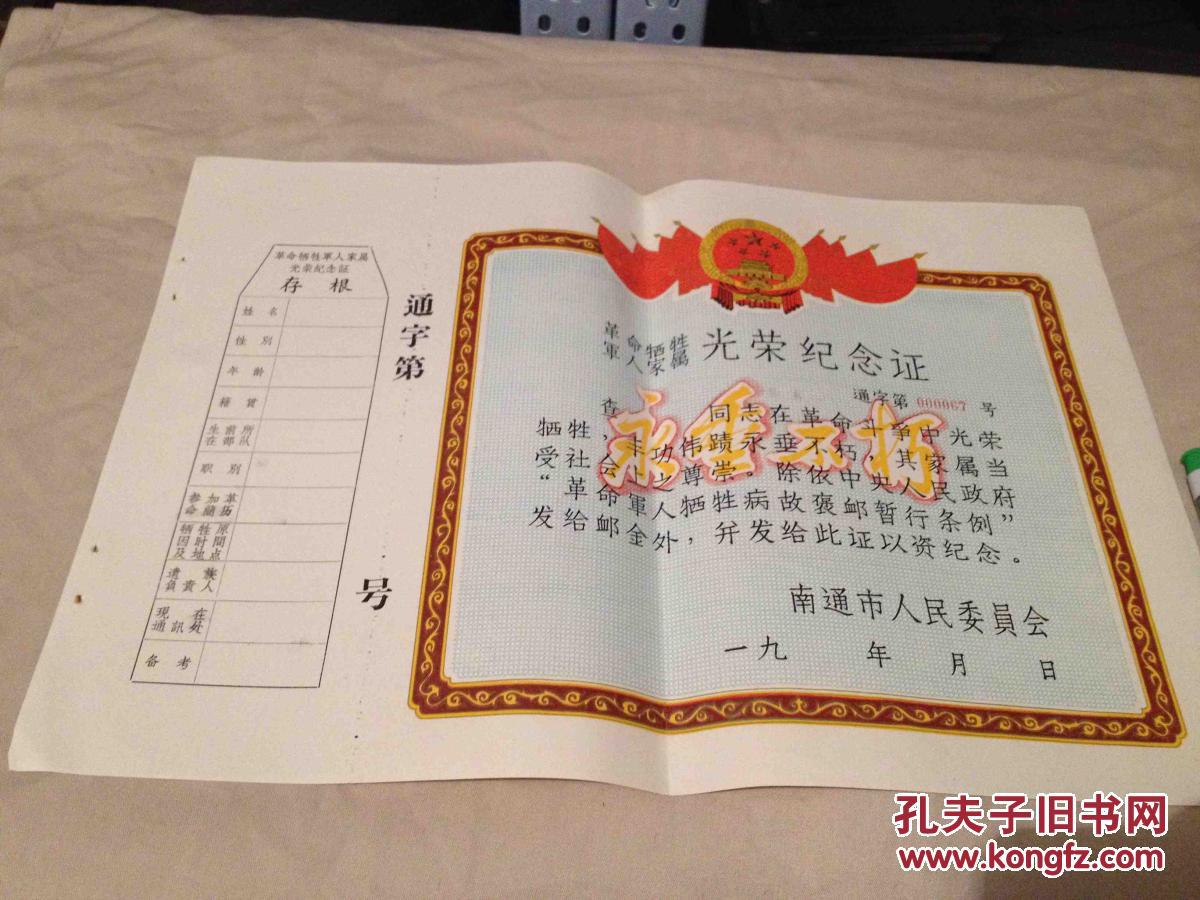 革命牺牲軍人家属
光荣紀念証
存根
姓名
性別
年齡
籍貫
生前所
在部队
职別
参加革
命簡历
牺牲原
因时間
及地点
遺族
負責人
現在
通訊处
备考
通字第 号
革命牺牲
軍人家属
光荣纪念证
通字第 000067 号
永垂不朽
查 同志在革命斗争中光荣
牺牲，丰功伟蹟永垂不朽，其家属当
受社会上之尊崇。除依中央人民政府
“革命軍人牺牲病故褒邮暂行条例”
发给邮金外，幷发给此证以资纪念。
南通市人民委員会
一九 年 月 日
孔夫子旧书网
www.kongfz.com